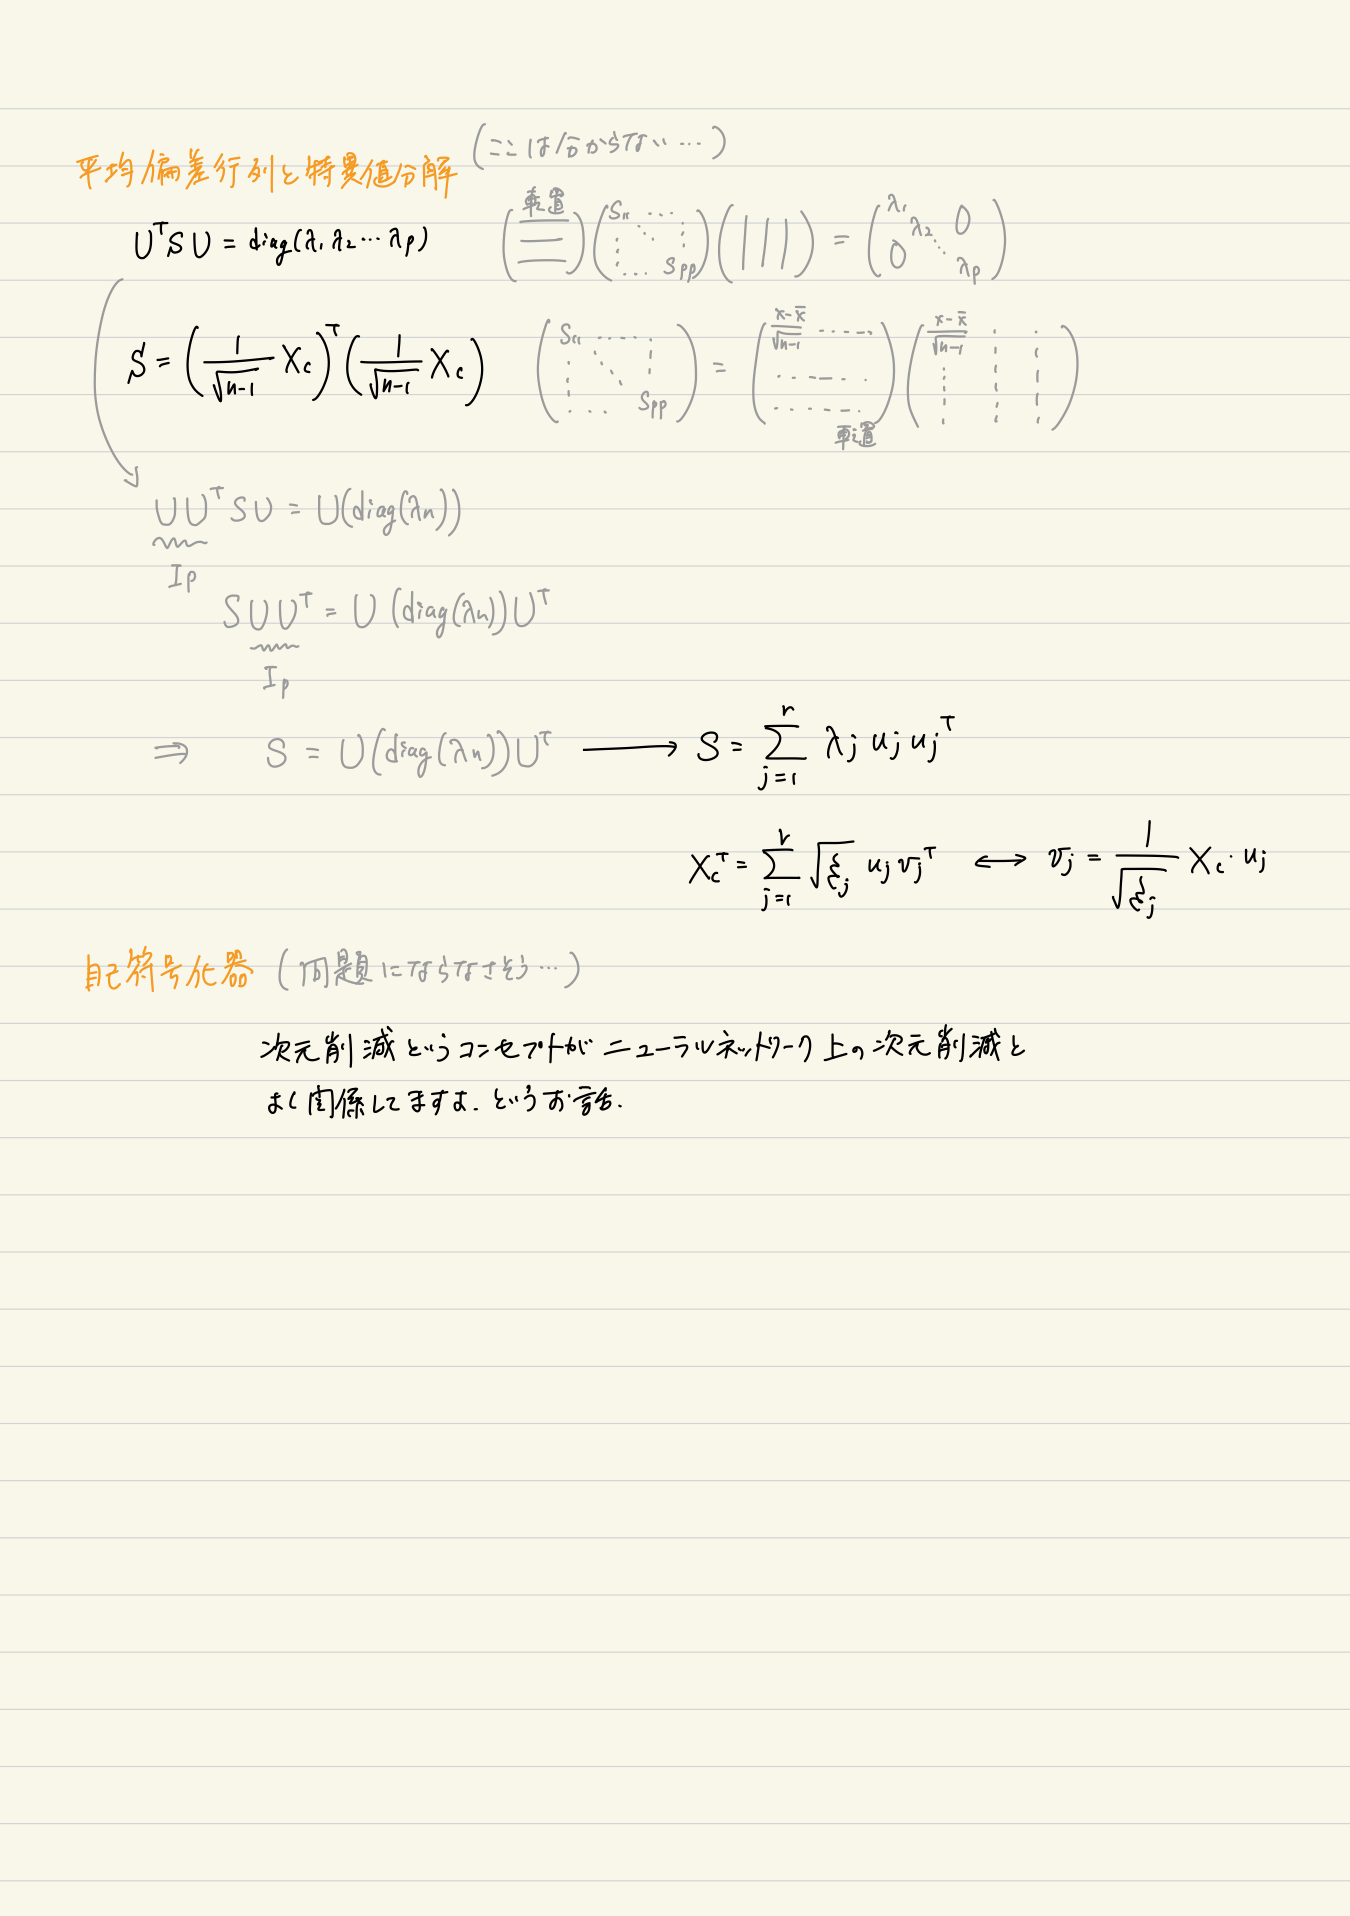 平均偏差行列と特異値分解 (ここは分からない…)
U^T S U = diag(λ1 λ2 … λp) (転置)(S11 … Spp)(|||) = (λ1 λ2 … λp 0 0)
S = (1/√(n-1) Xc)^T (1/√(n-1) Xc) (S11 … Spp) = ((x-x̄)/√(n-1) …)((x-x̄)/√(n-1) …)
転置
UU^T SU = U(diag(λn))
Ip
SUU^T = U(diag(λn))U^T
Ip
⇒ S = U(diag(λn))U^T → S = Σ_{j=1}^{r} λj uj uj^T
Xc^T = Σ_{j=1}^{r} √ξj uj vj^T ↔ vj = 1/√ξj Xc・uj
自己符号化器 (問題にならなさそう…)
次元削減というコンセプトがニューラルネットワーク上の次元削減と
よく関係してますよ.というお話.